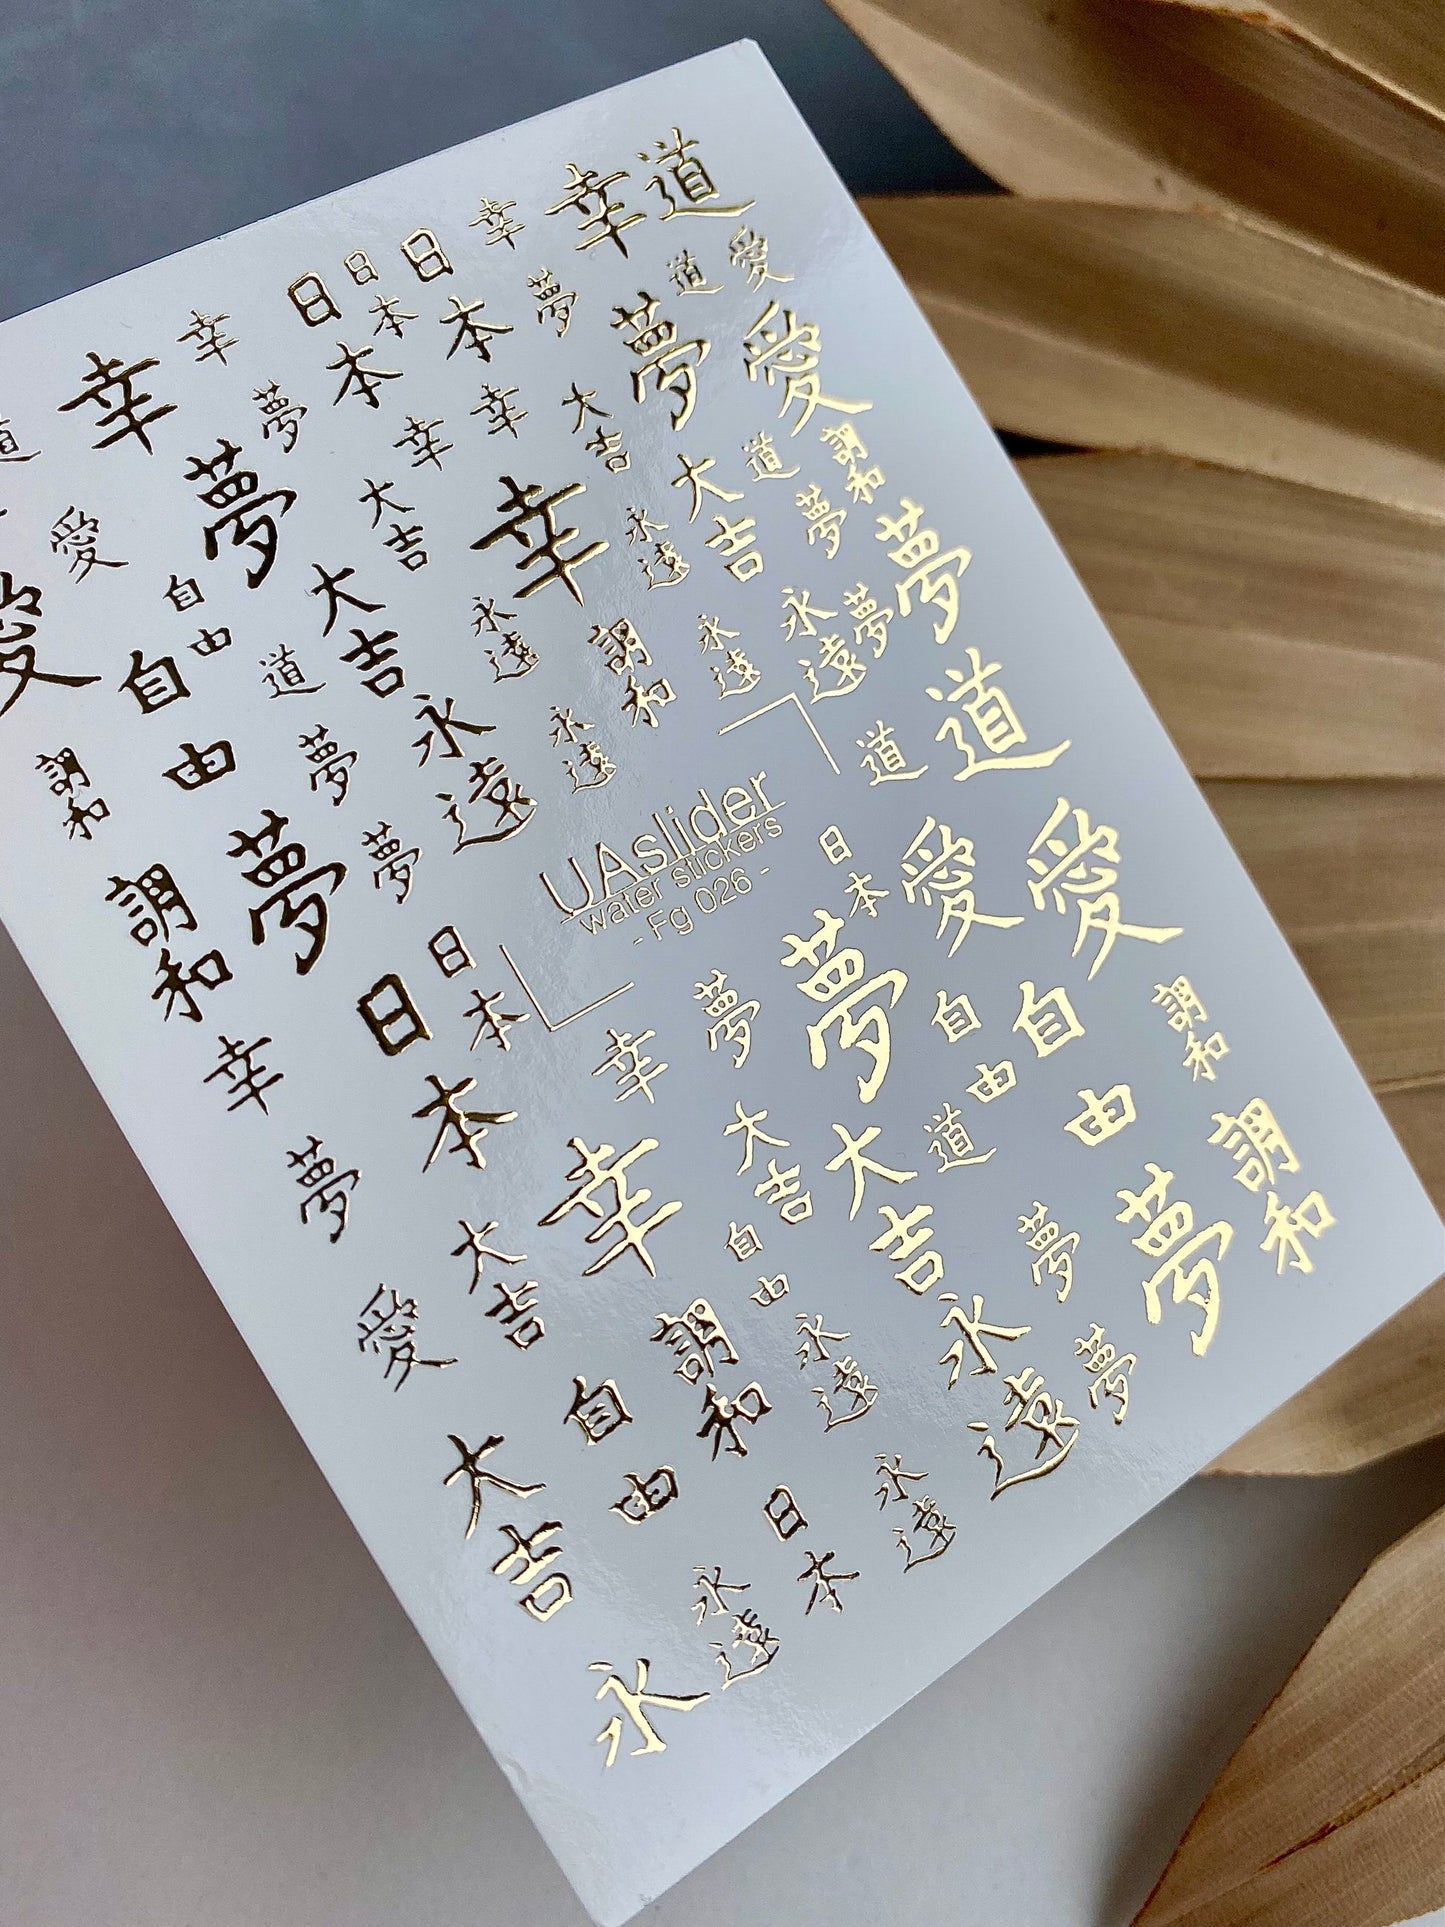 幸
道
幸
日本
日本
日本
幸
夢
道
愛
幸
道
夢
夢
愛
幸
幸
大吉
大吉
道
調和
夢
大吉
幸
永遠
夢
夢
愛
愛
自由
自由
道
大吉
永遠
調和
永遠
永遠
夢
道
道
調和
夢
永遠
永遠
UAslider
water stickers
- Fg 026 -
日本
愛
愛
調和
夢
夢
日本
日本
夢
夢
自由
自由
調和
幸
幸
幸
大吉
大吉
道
調和
夢
大吉
自由
夢
夢
愛
自由
調和
永遠
永遠
夢
大吉
日本
永遠
永遠
永